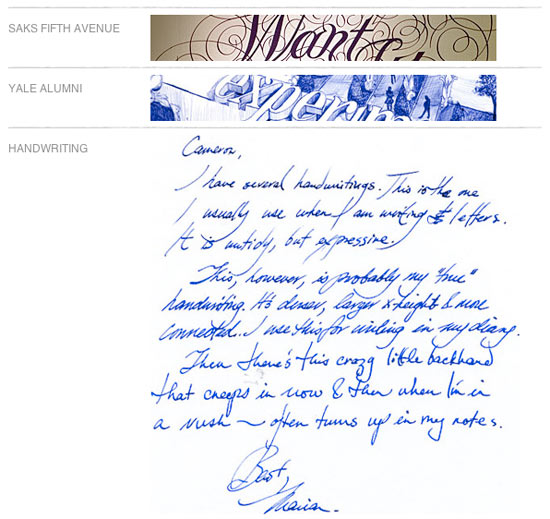 SAKS FIFTH AVENUE
Want
YALE ALUMNI
experim
HANDWRITING
Cameron,
I have several handwritings. This is the one
I usually use when I am writing letters.
It is untidy, but expressive.
This, however, is probably my "true"
handwriting. It's denser, larger x-height & more
connected. I use this for writing in my diary.
Then there's this crazy little backhand
that creeps in now & then when I'm in
a rush ~ often turns up in my notes.
Best,
Marian.